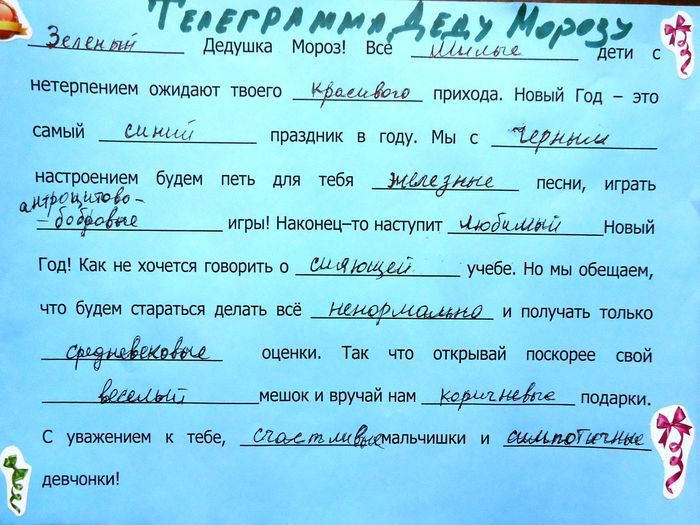 Телеграмма Деду Морозу
Зеленый Дедушка Мороз! Все милые дети с
нетерпением ожидают твоего красивого прихода. Новый Год – это
самый синий праздник в году. Мы с чёрным
настроением будем петь для тебя железные песни, играть
антроцитово-
-бобровые игры! Наконец–то наступит любимый Новый
Год! Как не хочется говорить о сияющей учебе. Но мы обещаем,
что будем стараться делать всё ненормально и получать только
средневековые оценки. Так что открывай поскорее свой
веселый мешок и вручай нам коричневые подарки.
С уважением к тебе, счастливые мальчишки и симпотичные
девчонки!